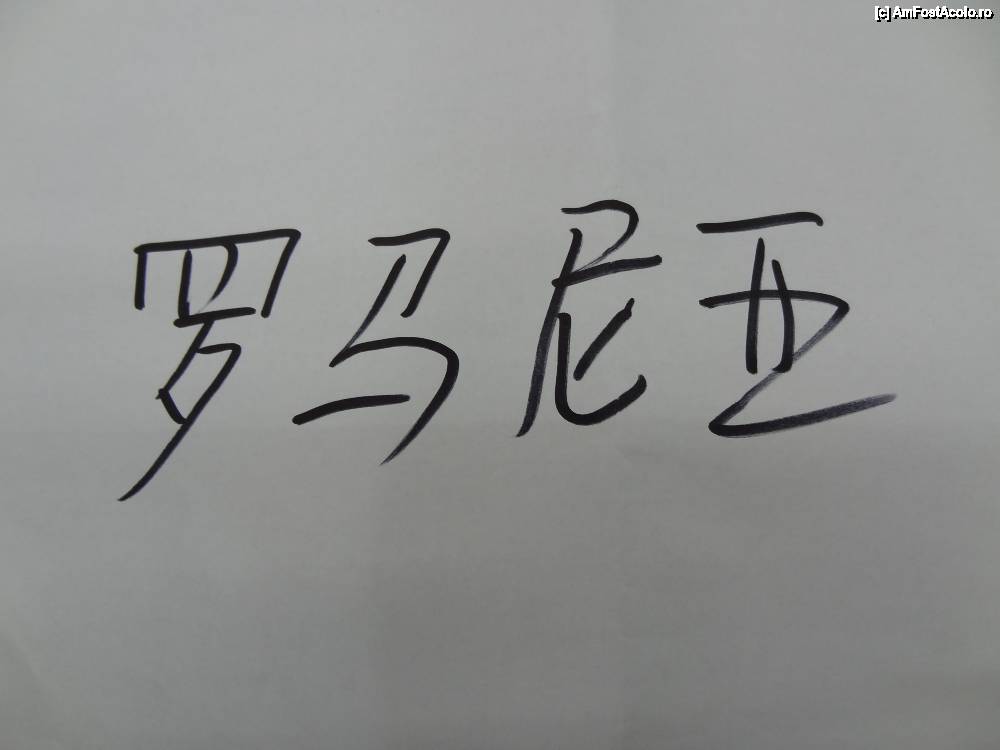 [c] AmFostAcolo.ro
罗马尼亚